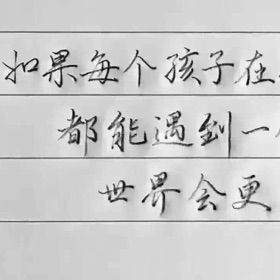 如果每个孩子在
都能遇到一
世界会更